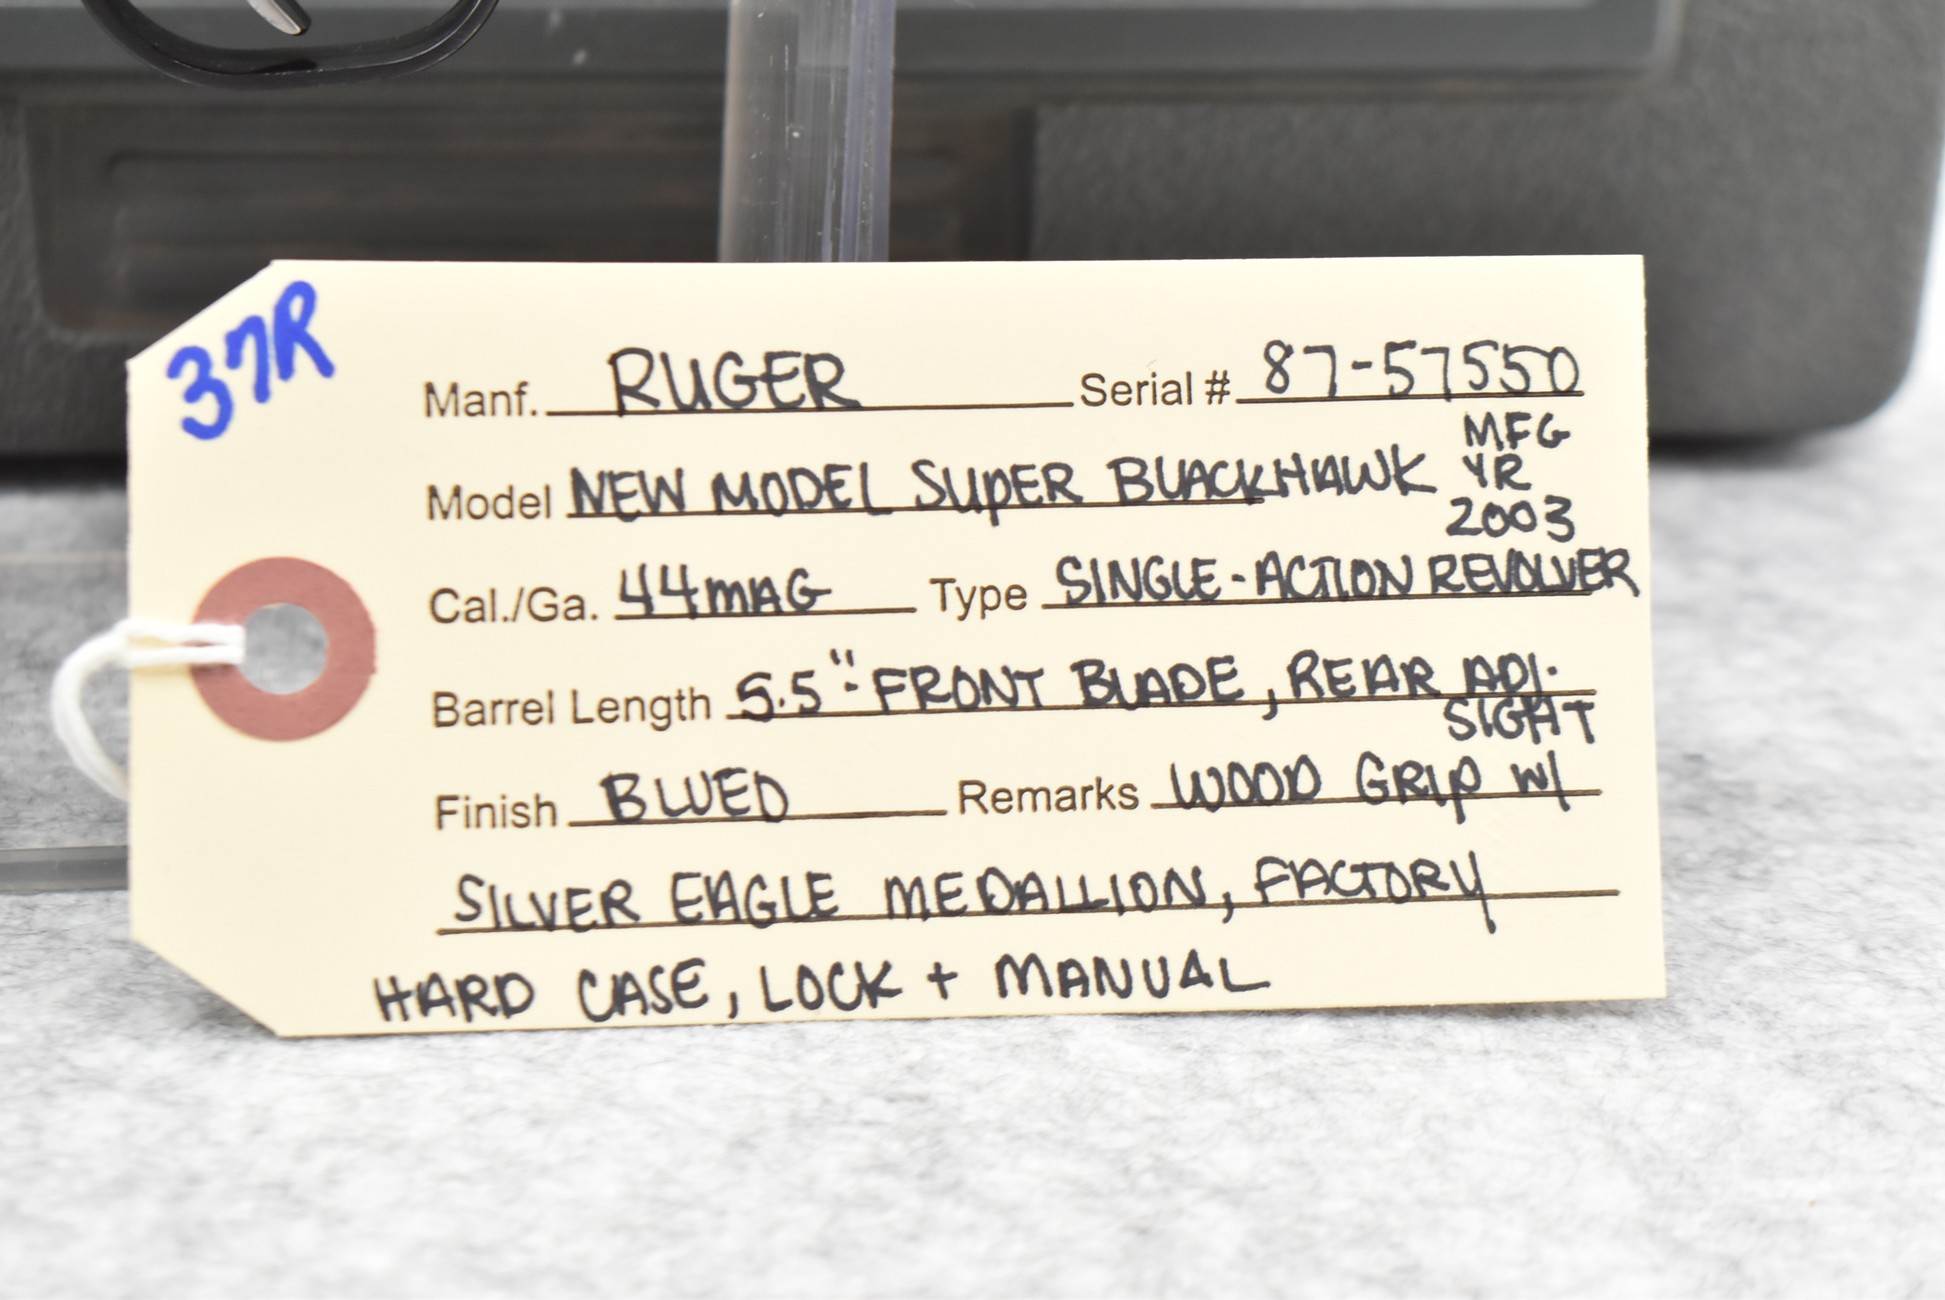 37R
Manf. RUGER Serial # 87-57550
MFG
Model NEW MODEL SUPER BLACKHAWK YR
2003
Cal./Ga. 44MAG Type SINGLE-ACTION REVOLVER
Barrel Length 5.5": FRONT BLADE, REAR ADJ.
SIGHT
Finish BLUED Remarks WOOD GRIP W/
SILVER EAGLE MEDALLION, FACTORY
HARD CASE, LOCK + MANUAL